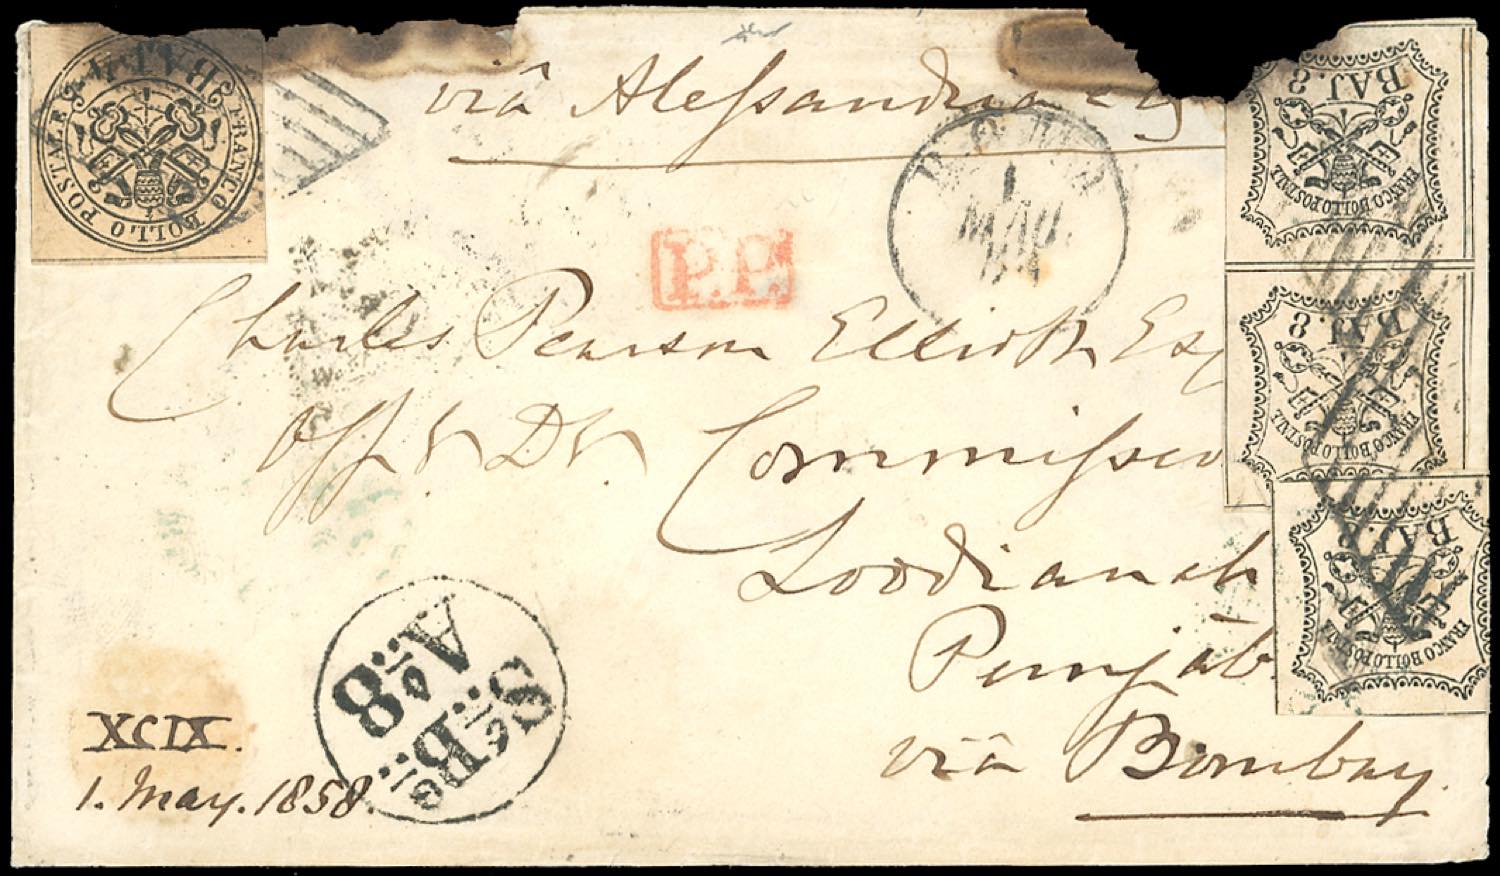 BAJ. 4
FRANCO BOLLO POSTALE
viâ Alessandria
ROMA
1
MAG.
BAJ. 8
FRANCO BOLLO POSTALE
P.P.
BAJ. 8
FRANCO BOLLO POSTALE
Charles Pearson Elliott Esq
Offg Dy Commissio
BAJ. 8
FRANCO BOLLO POSTALE
Loodianah
Punjâb
viâ Bombay.
XCIX.
1. May. 1858.